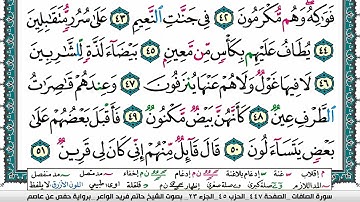 فَوَٰكِهُ وَهُم مُّكْرَمُونَ ٤٢ فِي جَنَّٰتِ ٱلنَّعِيمِ ٤٣ عَلَىٰ سُرُرٍ مُّتَقَٰبِلِينَ
٤٤ يُطَافُ عَلَيْهِم بِكَأْسٍ مِّن مَّعِينٍ ٤٥ بَيْضَآءَ لَذَّةٍ لِّلشَّٰرِبِينَ
٤٦ لَا فِيهَا غَوْلٌ وَلَا هُمْ عَنْهَا يُنزَفُونَ ٤٧ وَعِندَهُمْ قَٰصِرَٰتُ
ٱلطَّرْفِ عِينٌ ٤٨ كَأَنَّهُنَّ بَيْضٌ مَّكْنُونٌ ٤٩ فَأَقْبَلَ بَعْضُهُمْ عَلَىٰ
بَعْضٍ يَتَسَآءَلُونَ ٥٠ قَالَ قَآئِلٌ مِّنْهُمْ إِنِّي كَانَ لِي قَرِينٌ ٥١
سورة الصافات الصفحة ٤٤٧ الحزب ٤٥ الجزء ٢٣ بصوت الشيخ حاتم فريد الواعر برواية حفص عن عاصم